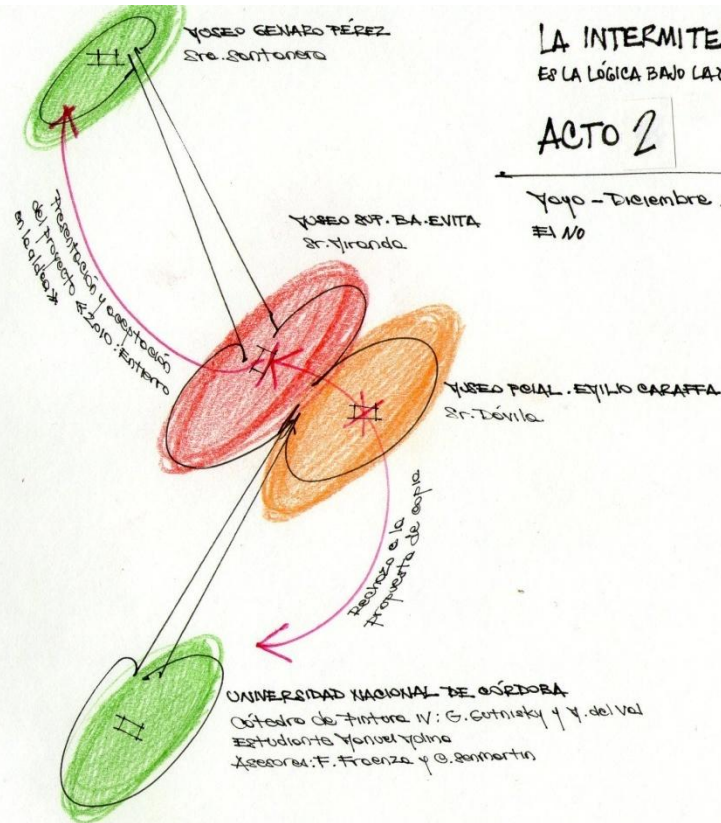 MUSEO GENARO PÉREZ
Sra. Santanera
LA INTERMITE
ES LA LÓGICA BAJO LA
ACTO 2
Mayo - Diciembre
El NO
Presentación y aceptación
del proyecto 2010: Entierro
en la aldea #
MUSEO SUP. BA. EVITA
Sr. Miranda
MUSEO PCIAL. EMILIO CARAFFA
Sr. Dávila
Rechazo a la
propuesta de copia
UNIVERSIDAD NACIONAL DE CÓRDOBA
Cátedra de Pintura IV: G. Gutnisky y M. del Val
Estudiante Manuel Molina
Asesores: F. Fraenza y C. Sanmartin